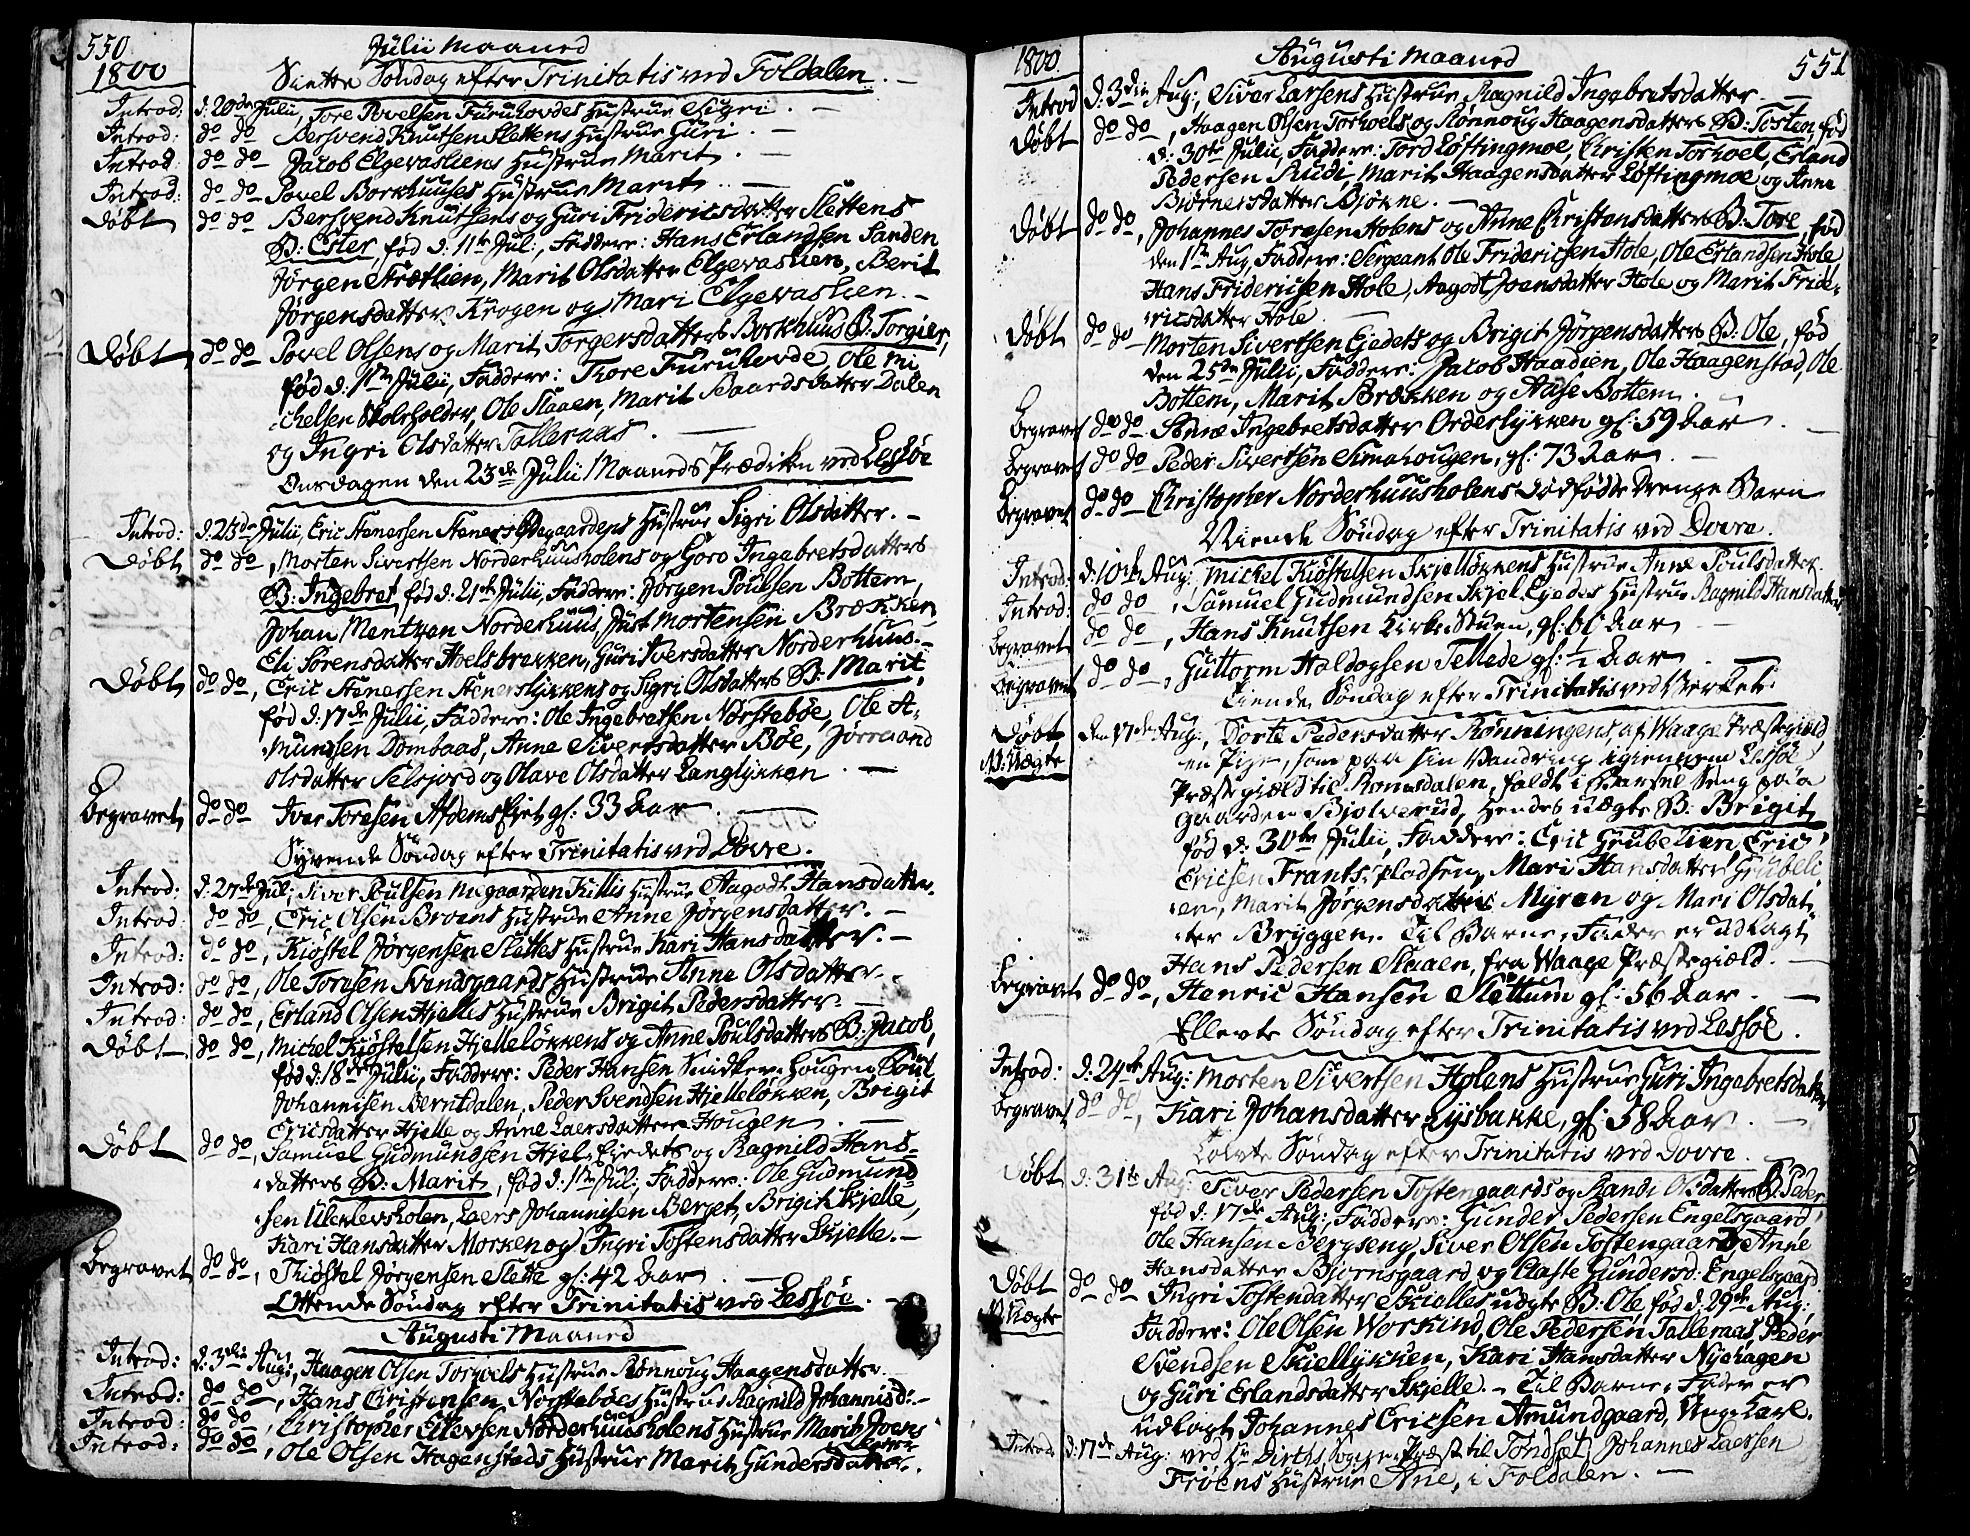 550
Julii Maaned
1800
Siette Søndag efter Trinitatis ved Foldalen.
Introd: d: 20de Julii, Tore Povelsen Furuhovdes Hustrue Sigri.
Introd: do do Bersvend Knutsen Slettens Hustrue Guri.
Introd: do do Jacob Elgevasliens Hustrue Marit.
Introd: do do Povel Borkhuuses Hustrue Marit.
Døbt do do Bersvend Knutsens og Guri Fridericsdatter Slettens
B: Ester, fød d: 11te Jul:, Faddere: Hans Erlandsen Sanden
Jørgen Strætlien, Marit Olsdatter Elgevaslien, Berit
Jørgensdatter Krogen og Mari Elgevaslien.
Døbt do do Povel Olsens og Marit Torgersdatters Borkhuus B: Torgier,
fød d: 1ste Julii, Faddere: Thore Furuhovde, Ole Mi
chelsen Stolpholder, Ole Slaaen, Marit Baardsdatter Dalen
og Ingri Olsdatter Talleraas.
Onsdagen den 23de Julii Maaneds Prædiken ved Lessøe
Introd: d: 23de Julii, Eric Stenersen Steners Ødegaardens Hustrue Sigri Olsdatter.
Døbt do do, Morten Sivertsen Norderhuusholens og Goro Ingebretsdatters
B: Ingebret, fød d: 21de Julii, Faddere: Jørgen Poulsen Bottem,
Johan Mentzan Norderhuus, Just Mortensen Brækken,
Eli Sørensdatter Hoelsbrekken, Guri Iversdatter Norderhuus.
Døbt do do, Eric Stenersen Stenerslykkens og Sigri Olsdatters B: Marit,
fød d: 17de Julii, Faddere: Ole Ingebretsen Nørstebøe, Ole A-
mundsen Dombaas, Anne Sivertsdatter Bøe, Jørrand
Olsdatter Selsjord og Olave Olsdatter Langlykken.
Begravet do do Ivar Toresen Afdems Ejet gl: 33 Aar.
Syvende Søndag efter Trinitatis ved Dovre.
Introd: d: 27de Jul:, Siver Poulsen Megaarden Killis Hustrue Aagodt Hansdatter.
Introd: do do, Eric Olsen Broens Hustrue Anne Jørgensdatter.
Introd: do do, Kiøstel Jørgensen Slettes Hustrue Kari Hansdatter.
Introd: do do, Ole Toresen Svendsgaards Hustrue Anne Olsdatter.
Introd: do do, Erland Olsen Hjelles Hustrue Brigit Pedersdatter.
Døbt do do, Michel Kjøstelsen Hjelleløkkens og Anne Poulsdatters B: Jacob,
fød d: 18de Julii, Faddere: Peder Hansen Snidker Hougen, Poul
Johannisen Berntdalen, Peder Svendsen Hjelleløkken, Brigit
Ericsdatter Hjelle og Anne Laersdatter Hougen.
Døbt do do, Samuel Gudmundsen Hjel Ejedets og Ragnild Hans-
datters B: Marit, fød d: 1ste Jul:, Faddere: Ole Gudmund-
sen Ulekleivsholen, Laers Johannisen Berget, Brigit Skjelle,
Kari Hansdatter Morken og Ingri Tostensdatter Skjelle.
Begravet do do, Thiøstel Jørgensen Slette gl: 42 Aar.
Ottende Søndag efter Trinitatis ved Lessøe.
Augusti Maaned
Introd: d: 3die Aug:, Haagen Olsen Torhoels Hustrue Rønnoug Haagensdatter.
Introd: do do, Hans Christensen Nørstebøes Hustrue Ragnild Johannisd:.
Introd: do do, Christopher Ellevsen Norderhuusholens Hustrue Marit Joens
datter
Introd: do do, Ole Olsen Hagenstads Hustrue Marit Gundersdatter.
1800
Augusti Maaned
551
Introd d: 3die Aug:, Siver Larsens Hustrue Ragnild Ingebretsdatter
Døbt do do, Haagen Olsen Torhoels og Rønnoug Haagensdatters B: Tosten, fød
d: 30te Julii, Faddere: Tord Løftingmoe, Christen Torhoel, Erland
Pedersen Rudi, Marit Haagensdatter Løftingmoe og Anne
Biørnersdatter Bjøkne.
Døbt do do, Johannes Toresen Holens og Anne Christensdatters B: Tore, fød
den 1ste Aug, Faddere: Sergeant Ole Fridericsen Hole, Ole Erlandsen Hole
Hans Fridericsen Hole, Aagodt Joensdatter Hole og Marit Fride-
ricsdatter Hole.
Døbt do do Morten Sivertsen Ejedets og Brigit Jørgensdatters B: Ole, fød
den 25de Julii, Faddere: Jacob Haadien, Ole Haagenstad, Ole
Bottem, Marit Brækken og Aase Bottem.
Begravet do do Anne Ingebretsdatter Orderlykken gl: 59 Aar.
Begravet do do Peder Sivertsen Simahougen, gl: 73 Aar.
Begravet do do Christopher Norderhuusholens dødfødte Drenge Barn
Niende Søndag efter Trinitatis ved Dovre.
Introd: d: 10de Aug:, Michel Kiøstelsen Skjelløkkens Hustrue Anne Poulsdatter.
Introd: do do, Samuel Gudmundsen Skjel Ejedes Hustrue Ragnild Hansdatter
Begravet do do, Hans Knutsen Kirke Stuen, gl: 60 Aar
Begravet do do, Guttorm Haldogsen Tellede gl: 1/2 Aar
Tiende Søndag efter Trinitatis ved Verket.
Døbt den 17de Aug:, Dorte Pedersdatter Rønningens, af Waage Præstegield,
N: Uægte en Pige, som paa sin Vandring igiennem Lessøe
Præstegield til Romsdalen, faldt i Barsel Seng paa
gaarden Bjølverud, hendes uægte B: Brigit
fød d: 30te Julii, Faddere: Eric Grubelien, Eric
Ericsen Frants pladsen, Mari Hansdatter Grubeli
en, Marit Jørgensdatter Myren og Mari Olsdat-
ter Bryggen. Til Barne-Fader er udlagt
Hans Pedersen Slaaen, fra Waage Præstegield.
Begravet do do, Henric Hansen Slettum gl: 56 Aar.
Ellevte Søndag efter Trinitatis ved Lessøe.
Introd: d: 24de Aug: Morten Sivertsen Holens Hustrue Guri Ingebretsdatter
Begravet do do, Kari Johansdatter Lysbakke, gl: 58 Aar.
Tolvte Søndag efter Trinitatis ved Dovre.
Døbt d: 31te Aug: Siver Pedersen Tostengaards og Randi Olsdatters B: Peder
fød d: 17de Aug:, Faddere: Gunder Pedersen Engelsgaard,
Ole Hansen Bergseng, Siver Olsen Tostengaard, Anne
Hansdatter Bjørnsgaard og Claste Gundersd: Engelsgaard.
Døbt do do Ingri Tostendatter Skielles uægte B: Ole, fød d: 29de Aug:
N: Uægte Faddere: Ole Olsen Workind, Ole Pedersen Talleraas, Peder
Svendsen Skiellykken, Kari Hansdatter Nyehagen
og Guri Erlandsdatter Skjelle. Til Barne-Fader er
udlagt Johannes Ericsen Amundgaard, Unge Karl.
Introd. d: 17de Aug: ved Hr. Dirths, Sogne Præst til Tøndset, Johannes Laersen
Frøens Hustrue Ane, i Foldalen.